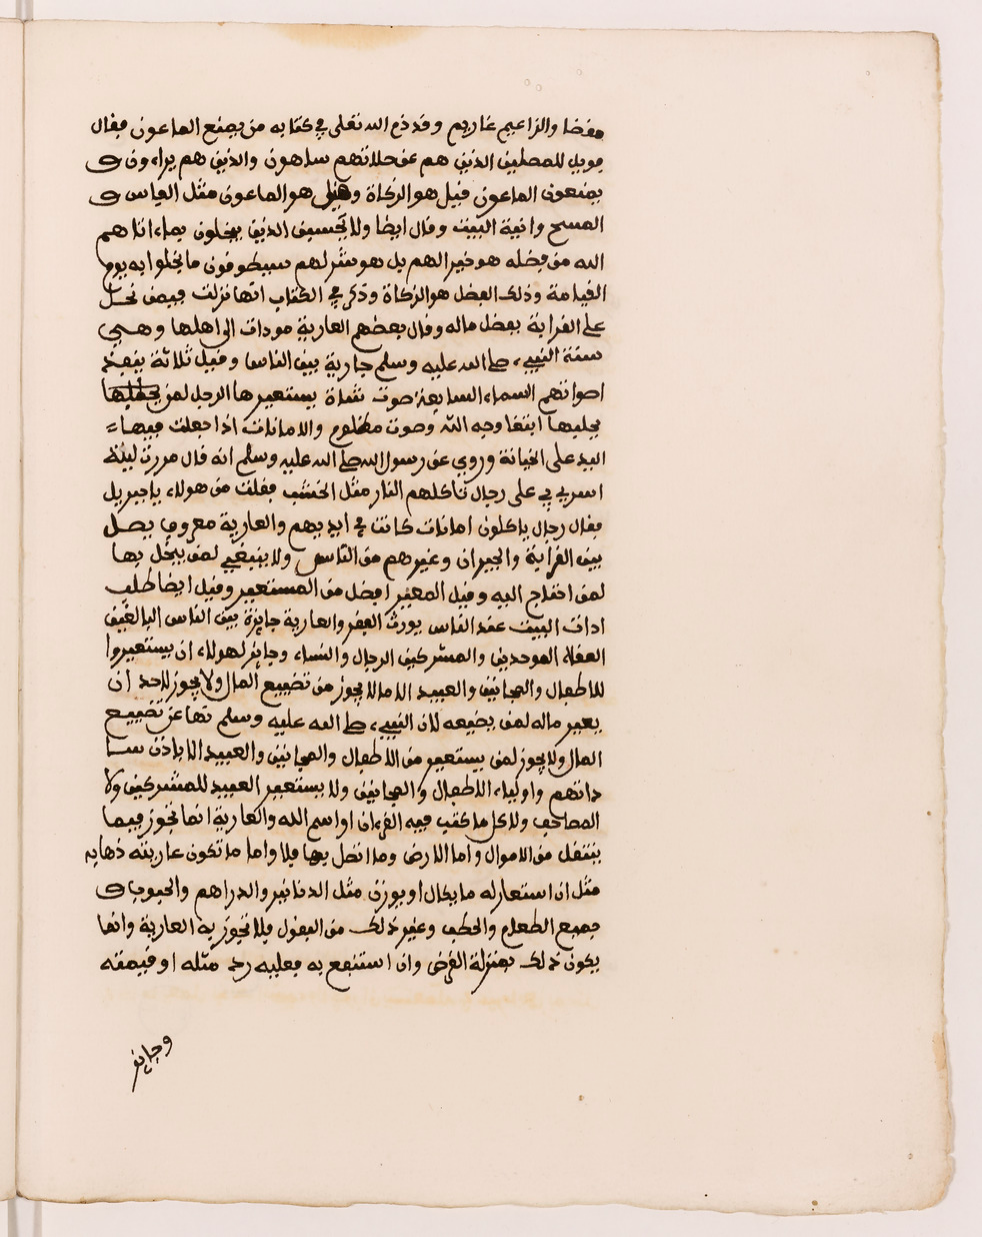 مقضا والزاعيم غاريم وقد ذم الله تعلى في كتابه من يمنع الماعون فقال
فويل للمصلين الذين هم عن صلاتهم ساهون والذين هم يراءون و
يمنعون الماعون قيل هو الزكاة وقيل هو الماعون مثل الفاس و
المسح وانية البيت وقال ايضا ولا تحسبن الذين يبخلون بماء اتاهم
الله من فضله هو خير الهم بل هو شر لهم سيطوقون ما بخلوا به يوم
القيامة وذلك الفضل هو الزكاة وذكر في الكتاب انها نزلت فيمن بخل
على القرابة بفضل ماله وقال بعضهم العارية مودات الى اهلها وهي
سنة النبيء صلى الله عليه وسلم جارية بين الناس وقيل ثلاثة
اصواتهم السماء السابعة صوت شاة يستعيرها الرجل لمن
يحلبها ابتغا وجه الله وصوت مظلوم والامانات اذا جعلت فيها
اليد على الخيانة وروي عن رسول الله صلى الله عليه وسلم انه قال مررت ليلة
اسري بي على رجال تاكلهم النار مثل الخشب فقلت من هولاء يا جبريل
فقال رجال ياكلون امانات كانت في ايديهم والعارية معروف يصل
بين القرابة والجيران وغيرهم من الناس ولا ينبغي لمن يبخل بها
لمن احتاج اليه وقيل المعير افضل من المستعير وقيل ايضا طلب
ادات البيت عند الناس يورث الفقر والعارية جايزة بين الناس البالغين
العقلاء الموحدين والمشركين الرجال والنساء وجايز لهولاء ان يستعيروا
للاطفال والمجانين والعبيد الا ما لا يجوز من تضييع المال ولا يجوز لاحد ان
يعير ماله لمن يضيعه لان النبيء صلى الله عليه وسلم نها عن تضييع
المال ولا يجوز لمن يستعير من الاطفال والمجانين والعبيد الا باذن سا
داتهم واولياء الاطفال والمجانين ولا يستعير العبيد للمشركين ولا
المصاحف ولا كل ما كتب فيه القرءان او اسم الله والعارية انما تجوز فيما
ينتقل من الاموال واما الارض وما اتصل بها فلا واما ما تكون عاريته ذهابه
مثل ان استعار له ما يكال او يوزن مثل الدنانير والدراهم والحبوب و
جميع الطعام والحطب وغير ذلك من البقول فلا تجوز به العارية وانما
يكون ذلك بمنزلة القرض وان استنفع به فعليه رد مثله او قيمته
وجايز